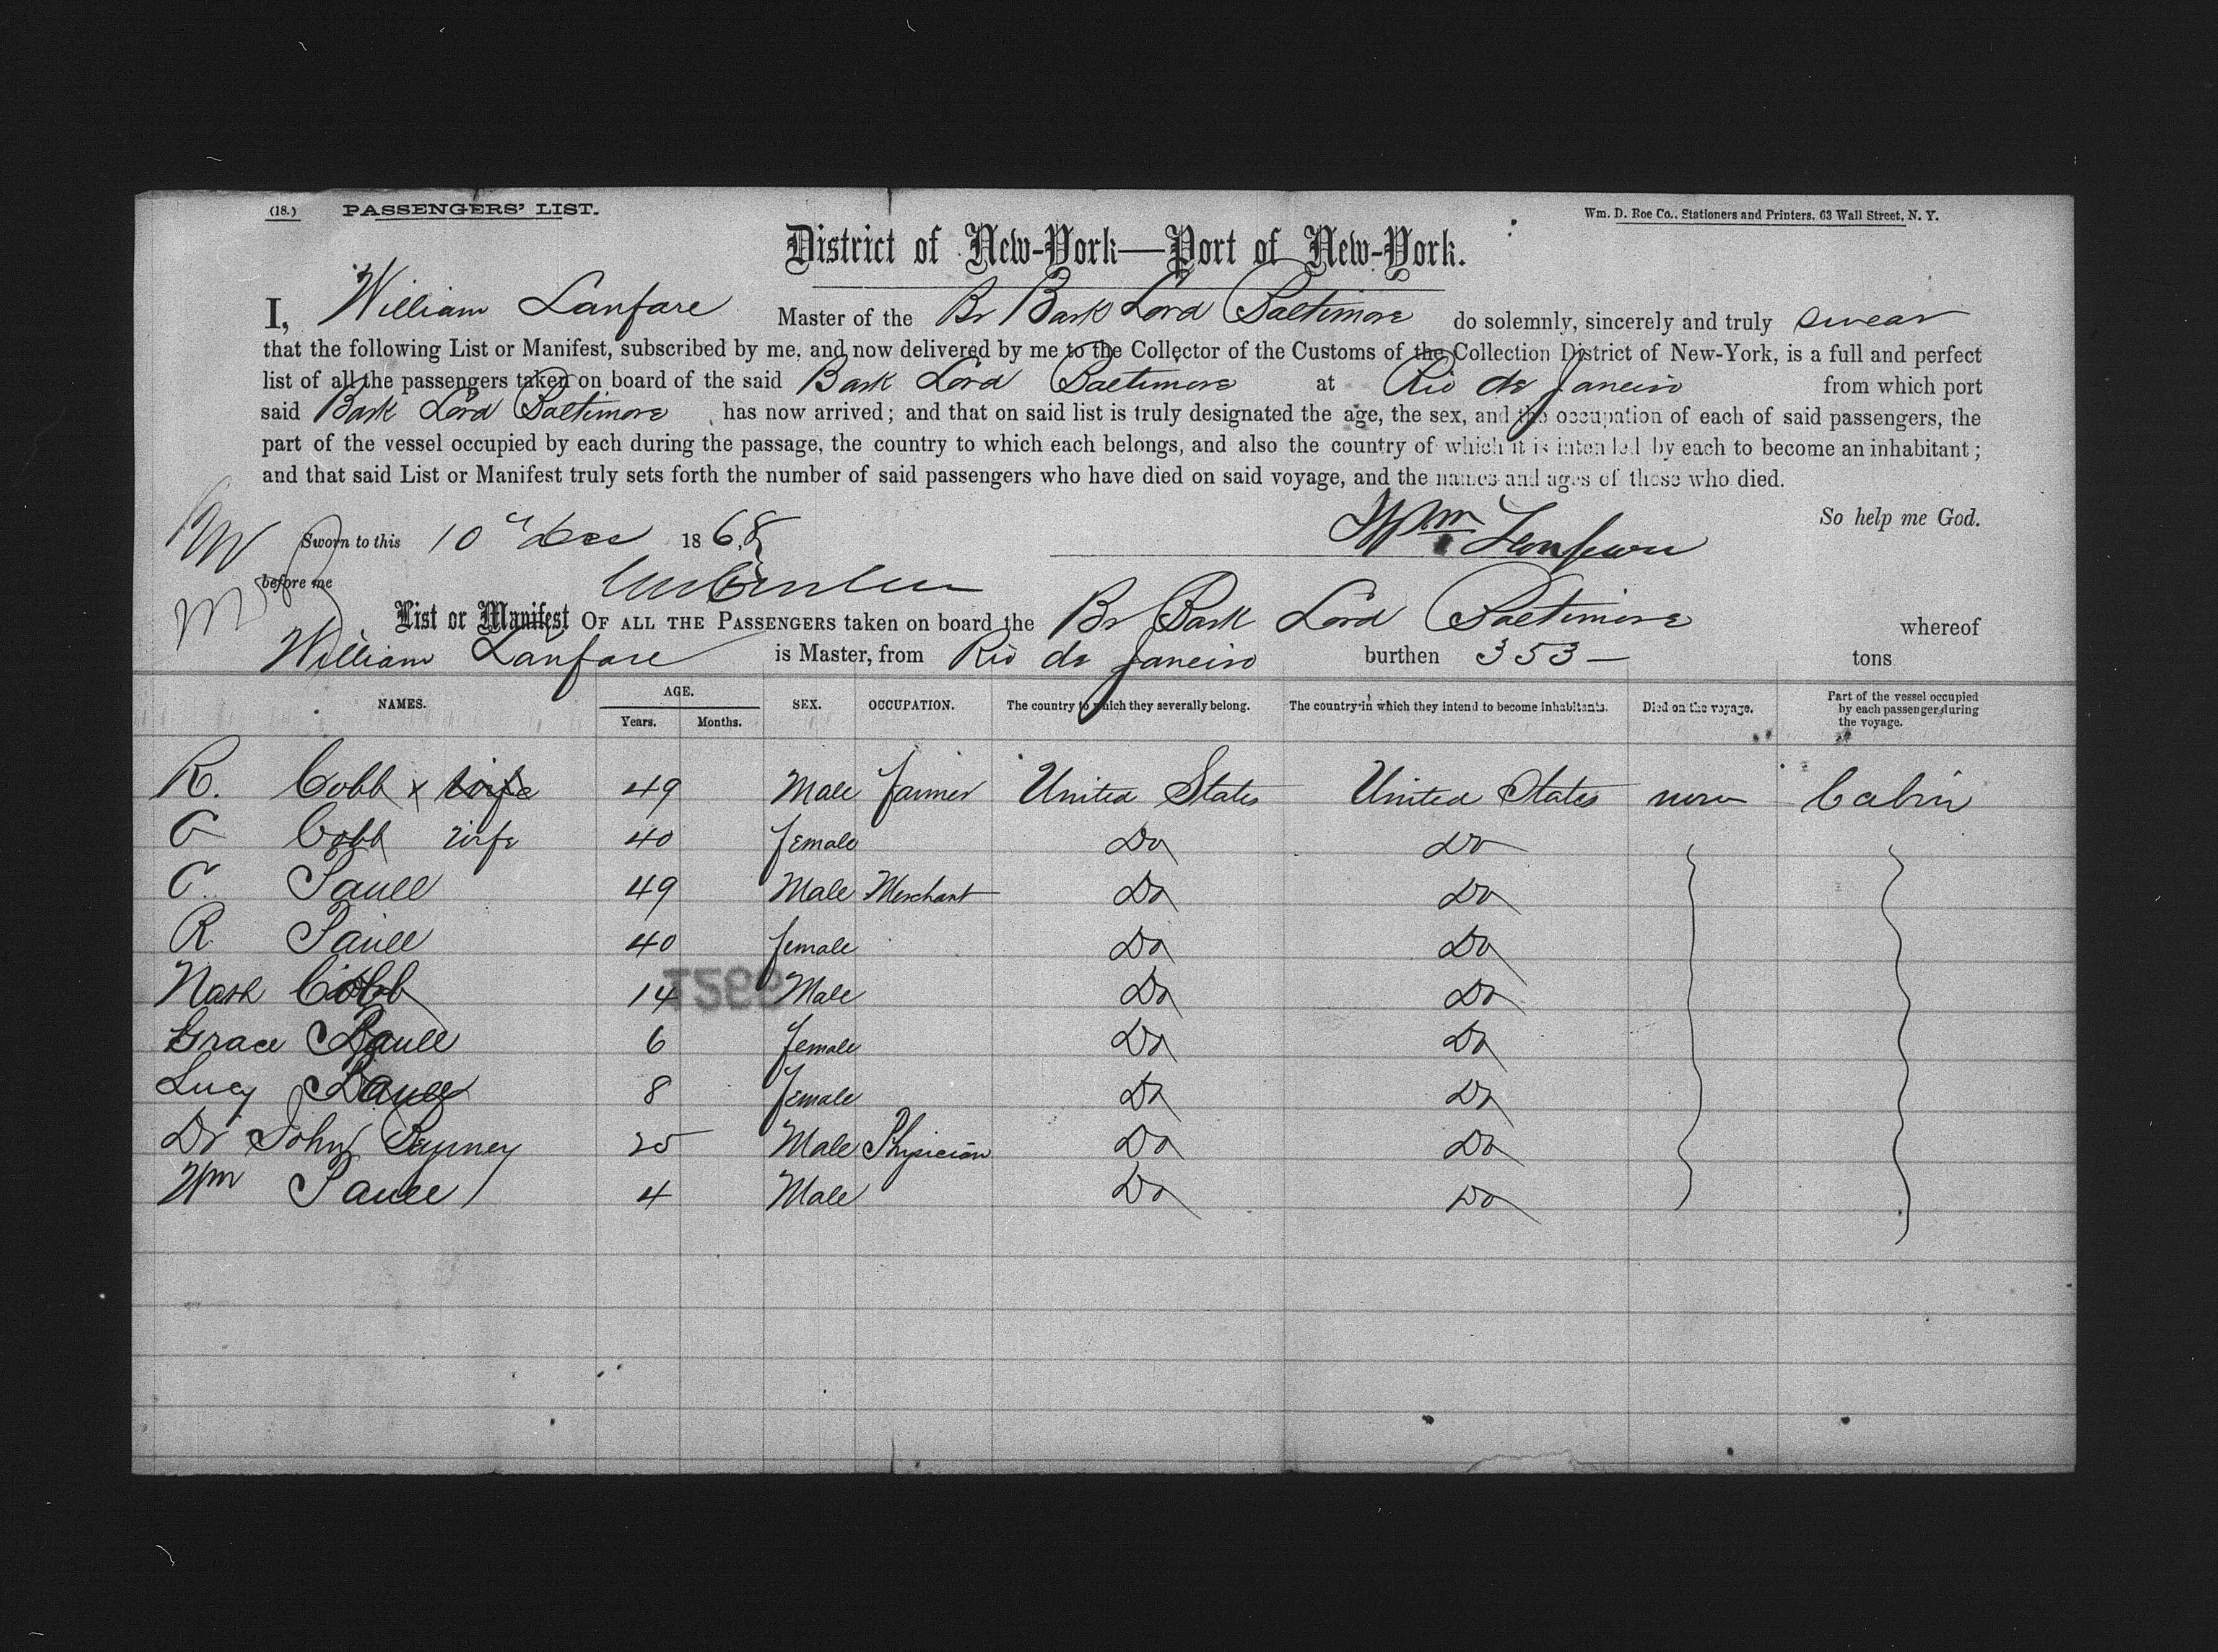 (18.) PASSENGERS' LIST. Wm. D. Roe Co., Stationers and Printers, 63 Wall Street, N. Y.
District of New-York—Port of New-York.
I, William Lanfare Master of the Br Bark Lord Baltimore do solemnly, sincerely and truly swear
that the following List or Manifest, subscribed by me, and now delivered by me to the Collector of the Customs of the Collection District of New-York, is a full and perfect
list of all the passengers taken on board of the said Bark Lord Baltimore at Rio de Janeiro from which port
said Bark Lord Baltimore has now arrived; and that on said list is truly designated the age, the sex, and the occupation of each of said passengers, the
part of the vessel occupied by each during the passage, the country to which each belongs, and also the country of which it is intended by each to become an inhabitant;
and that said List or Manifest truly sets forth the number of said passengers who have died on said voyage, and the names and ages of those who died.
So help me God.
Sworn to this 10 Dec 1868 Wm Lanfare
before me
List or Manifest OF ALL THE PASSENGERS taken on board the Br Bark Lord Baltimore whereof
William Lanfare is Master, from Rio de Janeiro burthen 353 tons
NAMES. AGE. Years. Months. SEX. OCCUPATION. The country to which they severally belong. The country in which they intend to become inhabitants. Died on the voyage. Part of the vessel occupied by each passenger during the voyage.
R. Cobb x wife 49 Male Farmer United States United States none Cabin
C Cobb wife 40 female Do Do
C. Paull 49 Male Merchant Do Do
R Paull 40 female Do Do
Nash Cobb 14 Male Do Do
Grace Paull 6 female Do Do
Lucy Paull 8 female Do Do
Dr John 25 Male Physician Do Do
Wm Paull 4 Male Do Do